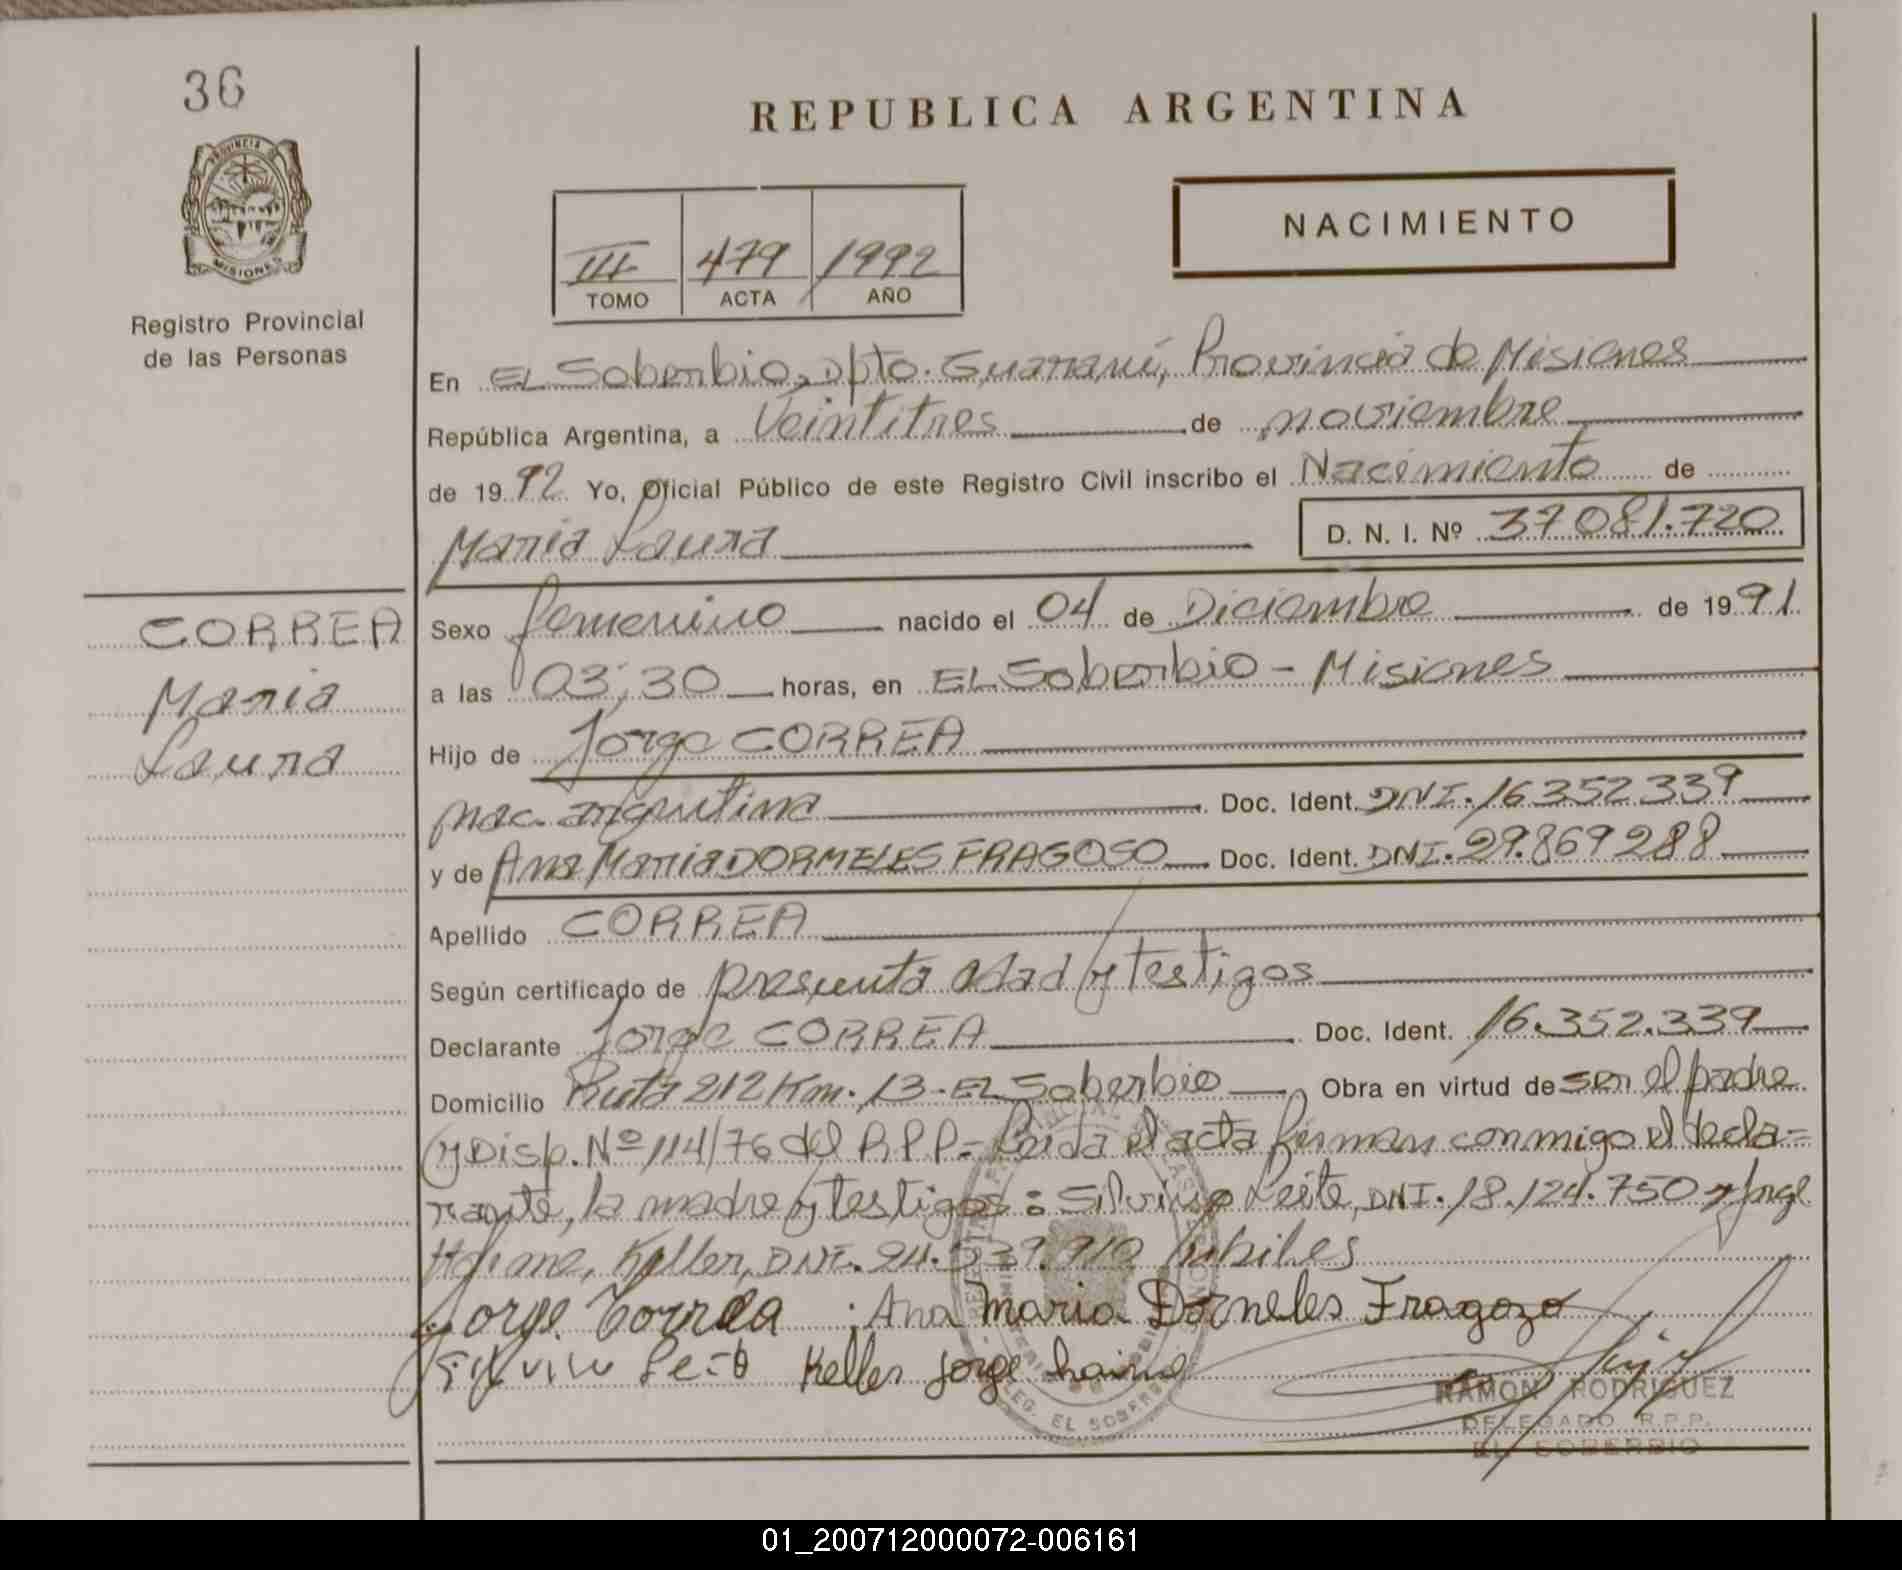 36
PROVINCIA DE
MISIONES
Registro Provincial
de las Personas
CORREA
Maria
Laura
REPUBLICA ARGENTINA
NACIMIENTO
III 479 1992
TOMO ACTA AÑO
En EL Soberbio, Dpto. Guaraní, Provincia de Misiones
República Argentina, a Veintitres de noviembre
de 1992 Yo, Oficial Público de este Registro Civil inscribo el Nacimiento de
Maria Laura D. N. I. Nº 37081.720
Sexo femenino nacido el 04 de Diciembre de 1991
a las 03;30 horas, en EL Soberbio - Misiones
Hijo de Jorge CORREA
nac. argentina Doc. Ident. DNI. 16352339
y de Ana Maria DORMELES FRAGOSO Doc. Ident. DNI. 29.869288
Apellido CORREA
Según certificado de presunta edad y testigos
Declarante Jorge CORREA Doc. Ident. 16.352.339
Domicilio Ruta 212 Km. 13 - EL Soberbio Obra en virtud de ser el padre
y Disp. Nº 114/76 del R.P.P.= Leida el acta firman conmigo el decla=
rante, la madre y testigos: Silvino Leite, DNI. 18.124.750 y Jorge
Keller, DNI. habiles
Jorge Correa Ana maria Dorneles Fragozo
Keller Jorge haime
DELEG. EL SOBERBIO
RAMON RODRIGUEZ
DELEGADO R.P.P.
EL SOBERBIO
01_200712000072-006161